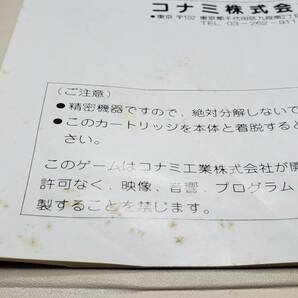 コナミ株式会
●東京 〒102 東京都千代田区九段南2丁
TEL 03-262-911
(ご注意)
●精密機器ですので、絶対分解しないで
●このカートリッジを本体と着脱すると
さい。
このゲームはコナミ工業株式会社が開
許可なく、映像、音響、プログラム
製することを禁じます。